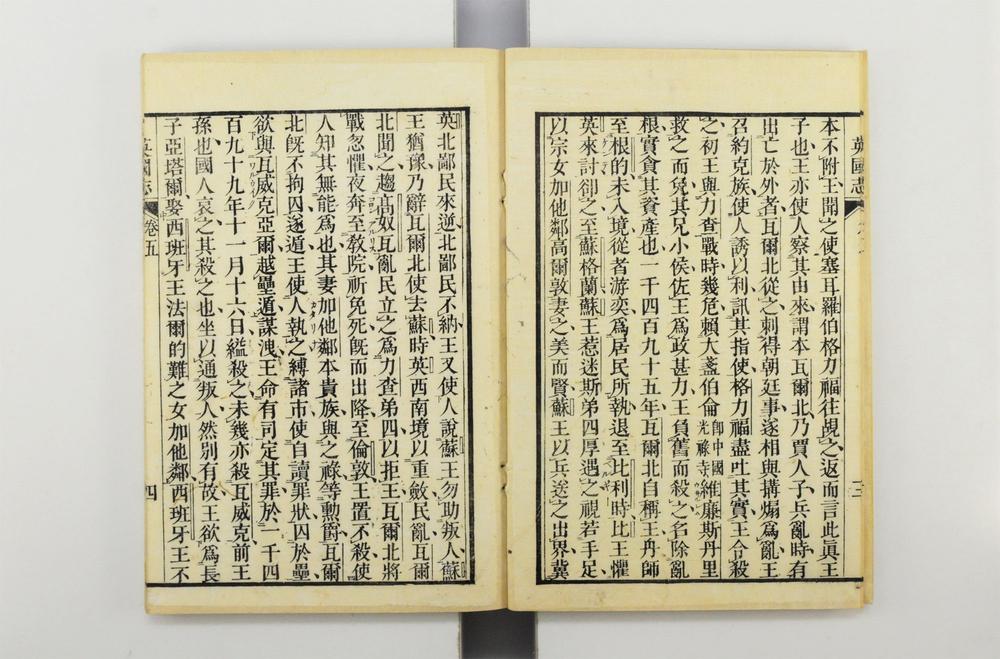 本不附王聞之使塞耳羅伯格力福往覘之返而言此眞王
子也王亦使人察其由來謂本瓦爾北乃賈人子兵亂時有
出亡於外者瓦爾北從之刺得朝廷事遂相與搆煽爲亂王
召約克族使人誘以利訊其指使格力福盡吐其實王令殺
之初王與力查戰時幾危賴大盞伯侖卽中國光祿寺維廉斯丹里
救之而免其兄小侯佐王爲政甚力王負舊而殺之名除亂
根實貪其資產也一千四百九十五年瓦爾北自稱王丹師
至根的未入境從者游奕爲居民所執退至比利時比王懼
英來討卻之至蘇格蘭蘇王惹迷斯弟四厚遇之視若手足
以宗女加他鄰高爾敦妻之美而賢蘇王以兵送之出界冀
英國志
三
英北鄙民來逆北鄙民不納王又使人說蘇王勿助叛人蘇
王猶豫乃辭瓦爾北使去蘇時英西南境以重斂民亂瓦爾
北聞之趨高奴瓦亂民立之爲力查弟四以拒王瓦爾北將
戰忽懼夜奔至敎院祈免死旣而出降至倫敦王置不殺使
人知其無能爲也其妻加他鄰本貴族與之祿等勲爵瓦爾
北旣不拘囚遂遁王使人執之縛諸市使自讀罪狀囚於壘
欲與瓦威克亞爾越壘遁謀洩王命有司定其罪於一千四
百九十九年十一月十六日縊殺之未幾亦殺瓦威克前王
孫也國人哀之其殺之也坐以通叛人然別有故王欲爲長
子亞塔爾娶西班牙王法爾的難之女加他鄰西班牙王不
英國志
卷五
四